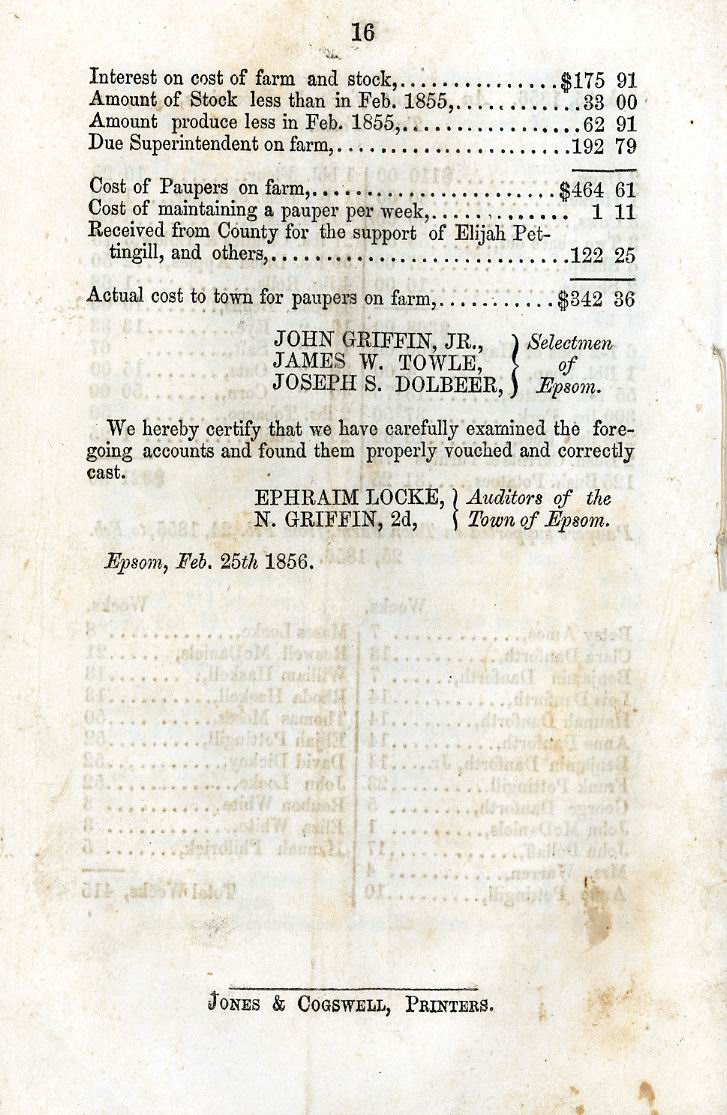 16
Interest on cost of farm and stock,...............$175 91
Amount of Stock less than in Feb. 1855,............33 00
Amount produce less in Feb. 1855,..................62 91
Due Superintendent on farm,.......................192 79
Cost of Paupers on farm,.........................$464 61
Cost of maintaining a pauper per week,............. 1 11
Received from County for the support of Elijah Pet-
tingill, and others,..............................122 25
Actual cost to town for paupers on farm,............$342 36
JOHN GRIFFIN, JR., } Selectmen
JAMES W. TOWLE, } of
JOSEPH S. DOLBEER, } Epsom.
We hereby certify that we have carefully examined the fore-
going accounts and found them properly vouched and correctly
cast.
EPHRAIM LOCKE, } Auditors of the
N. GRIFFIN, 2d, } Town of Epsom.
Epsom, Feb. 25th 1856.
JONES & COGSWELL, PRINTERS.